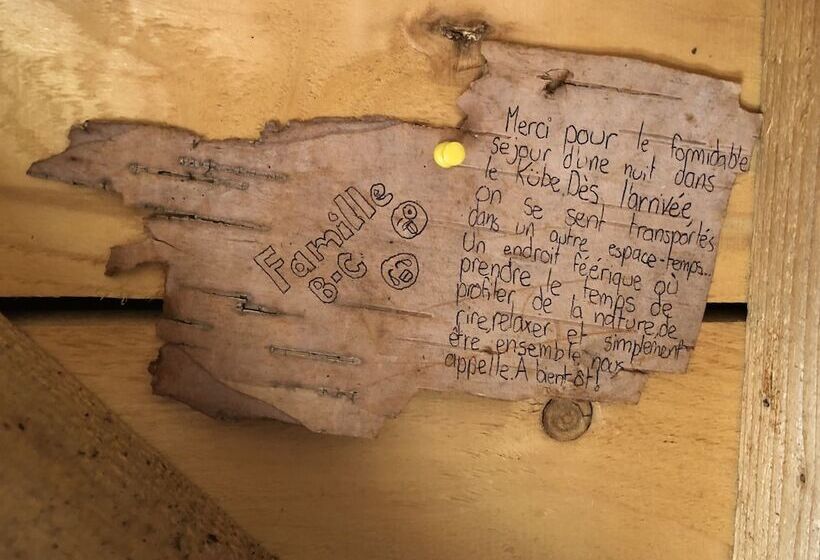 Famille
B-C
Merci pour le formidable
séjour d'une nuit dans
le Kübe. Dès l'arrivée,
on se sent transportés
dans un autre espace-temps...
Un endroit féérique où
prendre le temps de
profiter de la nature, de
rire, relaxer et simplement
être ensemble nous
appelle. À bientôt!